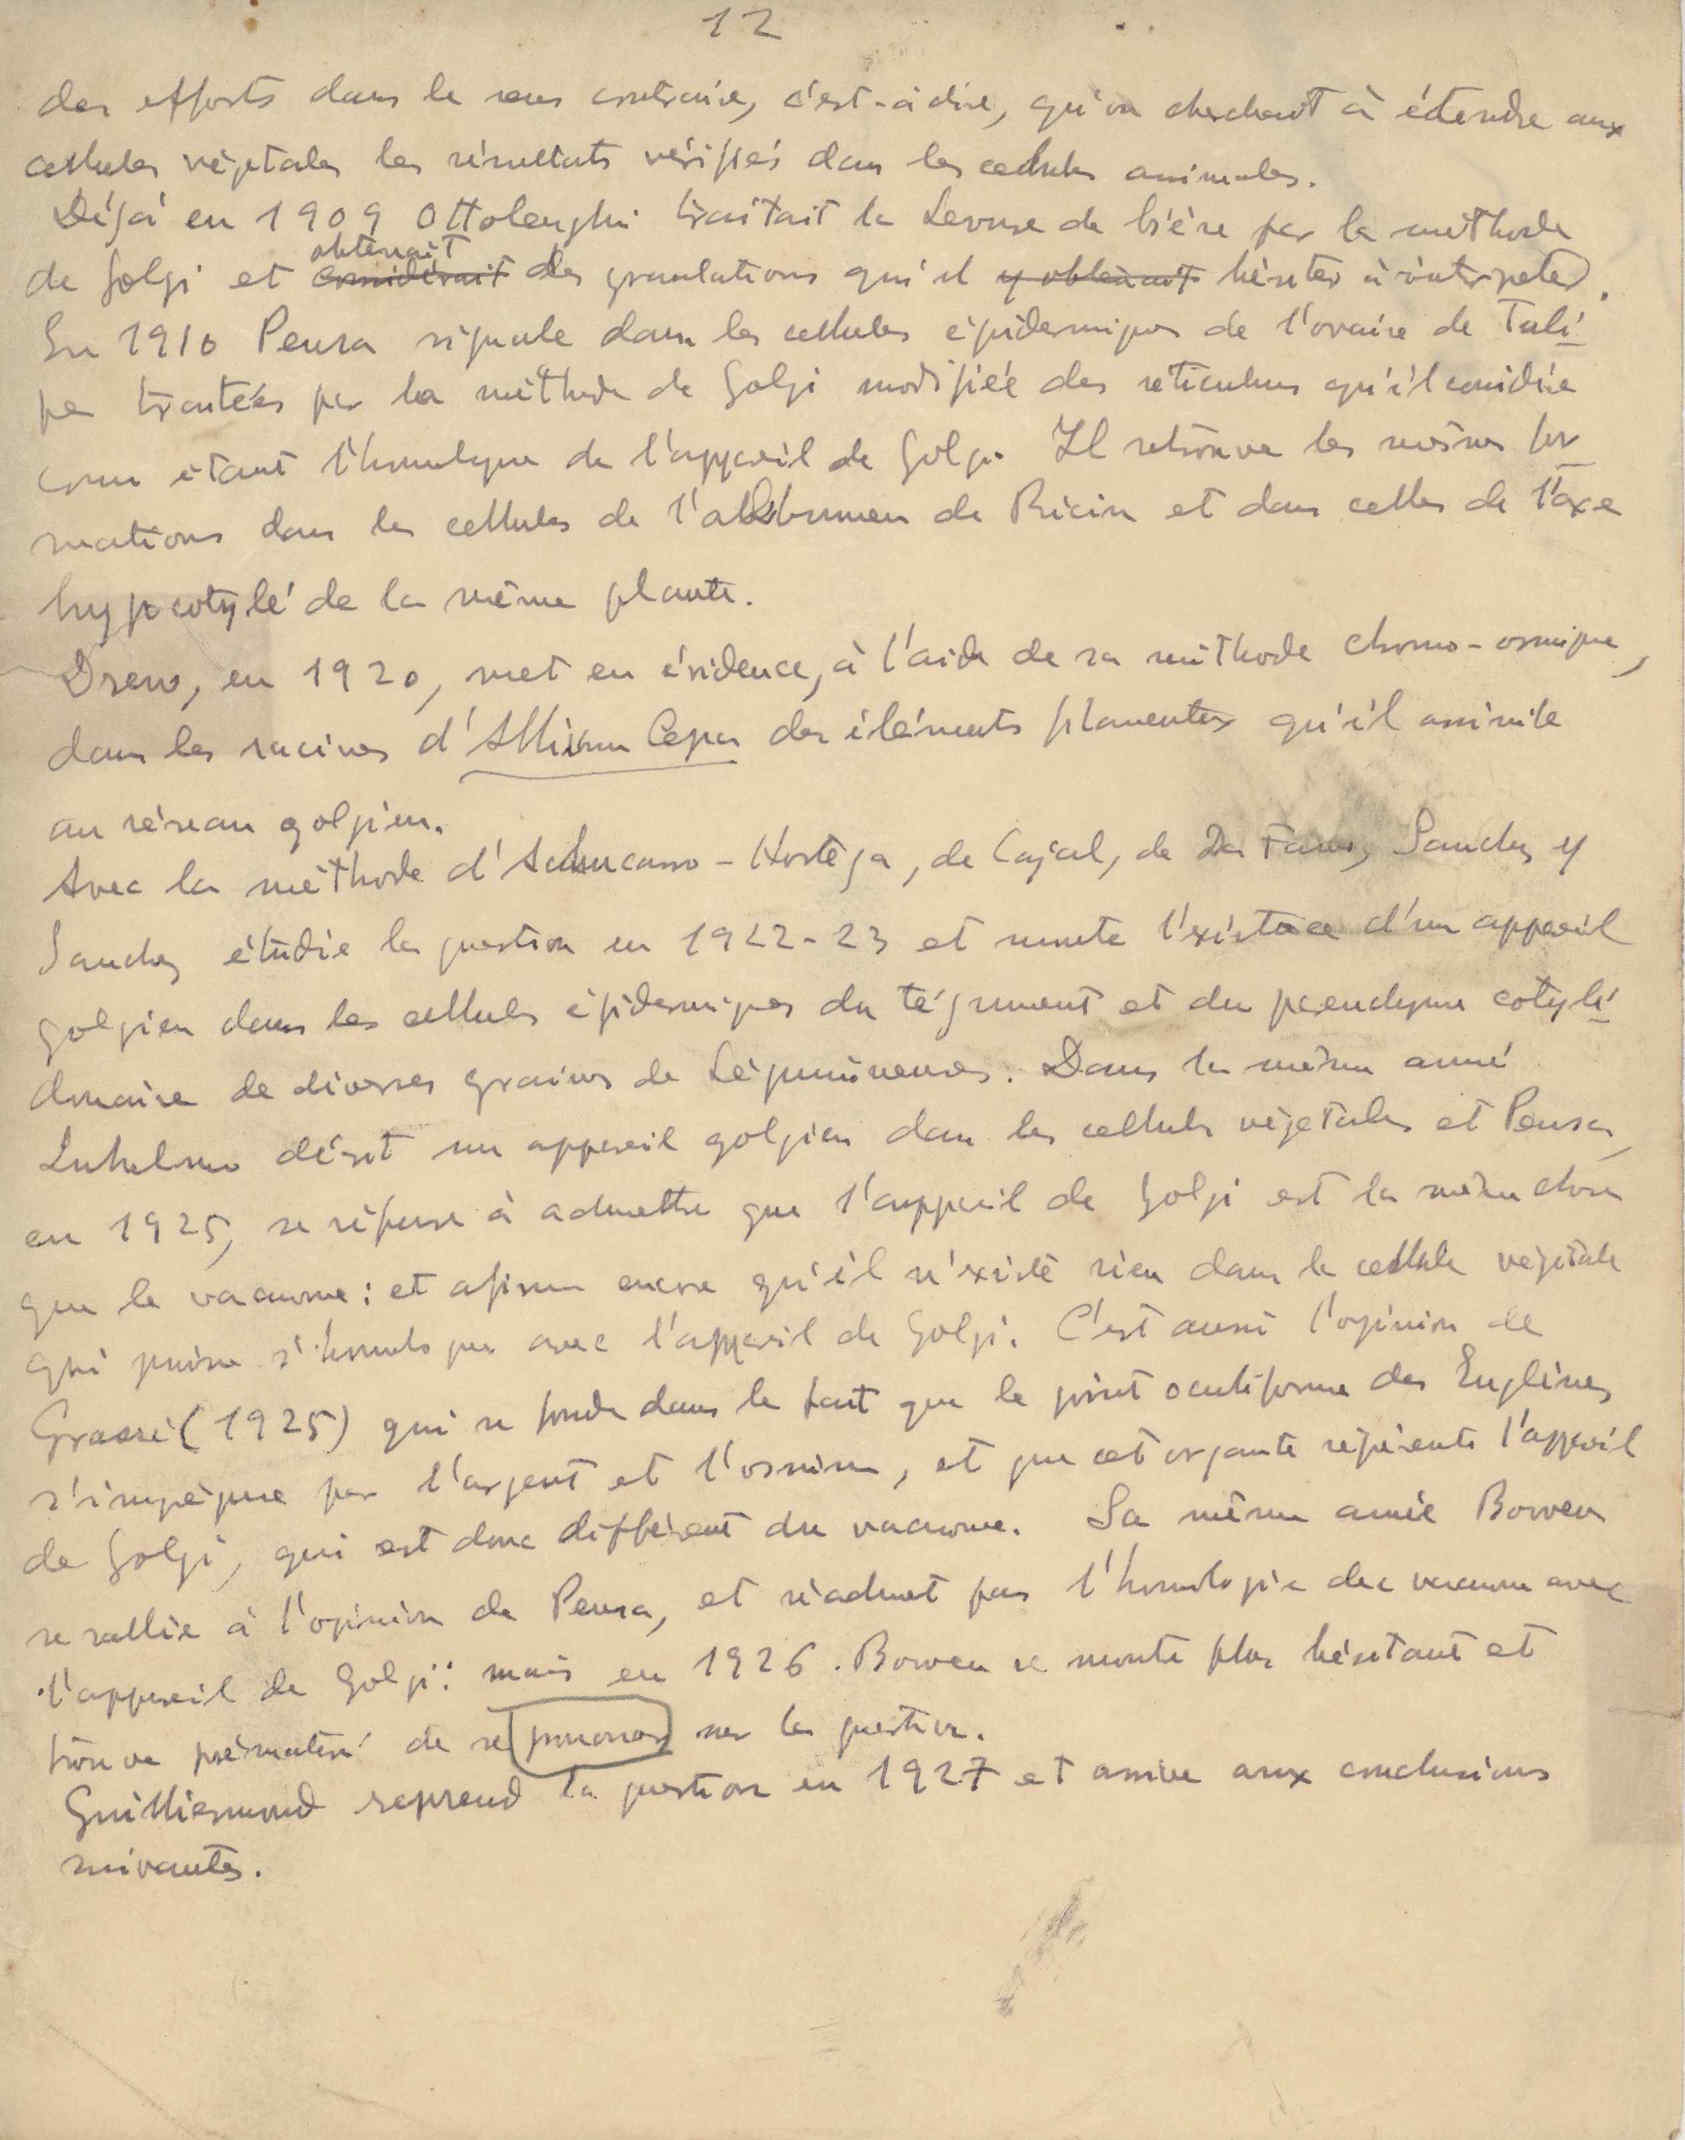 12
des efforts dans le sens contraire, c'est-à dire, qu'on cherchait à étendre aux
cellules végetales les résultats vérifiés dans les cellules animales.
Déjà en 1909 Ottolenghi traitait la Levure de bière par la méthode
obtenait
de Golgi et considérait des granulations qu'il y obtenait hésiter à intérpeter.
En 1910 Pensa signale dans les cellules épidermiques de l'ovaire de Tuli
pe traitées par la méthode de Golgi modifiée des réticulums qu'il considère
comm étant l'homologue de l'appareil de Golgi. Il retrouve les mêmes for
mations dans les cellules de l'albumen de Ricin et dans celles de l'axe
hypocotylé de la même plante.
Drew, en 1920, met en évidence, à l'aide de sa méthode chromo-osmique,
dans les racines d'Allium Cepa des éléments filamenteux qu'il assimile
au réseau golgien.
Avec la méthode d'Achucarro-Hortega, de Cajal, de Da Fano, Sanchez y
Sanchez étudie la question en 1922-23 et monte l'existence d'un appareil
golgien dans les cellules épidermiques du tégument et du parenchyme cotylé
donaire de diverses graines de Légumineuses. Dans la même anné
Luhelmo décrit un appareil golgien dans les cellules végetales et Pensa,
en 1925, se réfuse à admettre que l'appareil de Golgi est la même chose
que le vacuome: et afirme encore qu'il n'existe rien dans la cellule végétale
qui puisse s'homologuer avec l'appareil de Golgi. C'est aussi l'opinion de
Grassé (1925) qui se fonde dans le fait que le point oculiforme des Euglènes
s'imprègne par l'argent et l'osmium, et que cet organite réprésente l'appareil
de Golgi, qui est donc différent du vacuome. La même année Bowen
se rallie à l'opinion de Pensa, et n'admet pas l'homologie dec vacuome avec
l'appareil de Golgi: mais en 1926. Bowen se monte plus hésitant et
trouve prématuré de se prononcer sur la question.
Guilliermond reprend la question en 1927 et arrive aux conclusions
suivantes.